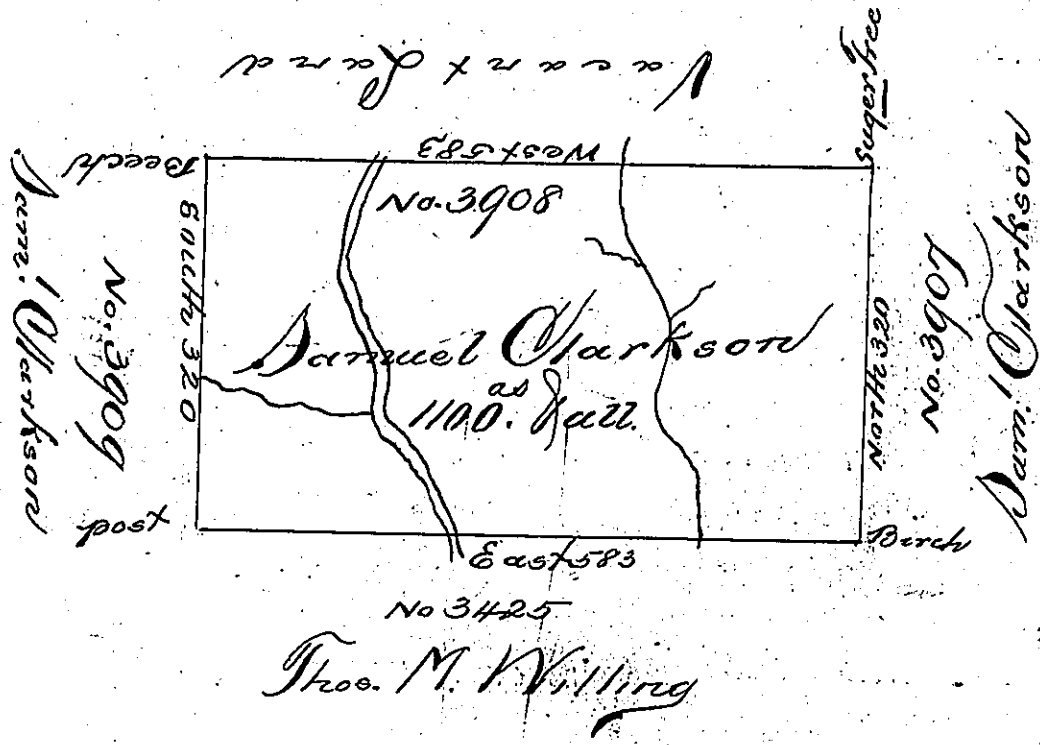 Vacant Land
Suger Tree
Beech
West 583
No. 3908
Sam.l Clarkson
No. 3909
South 320
Samuel Clarkson
as
1100. &all.
North 320
No. 3907
Sam.l Clarkson
post
Birch
East 583
No 3425
Thos. M. Willing